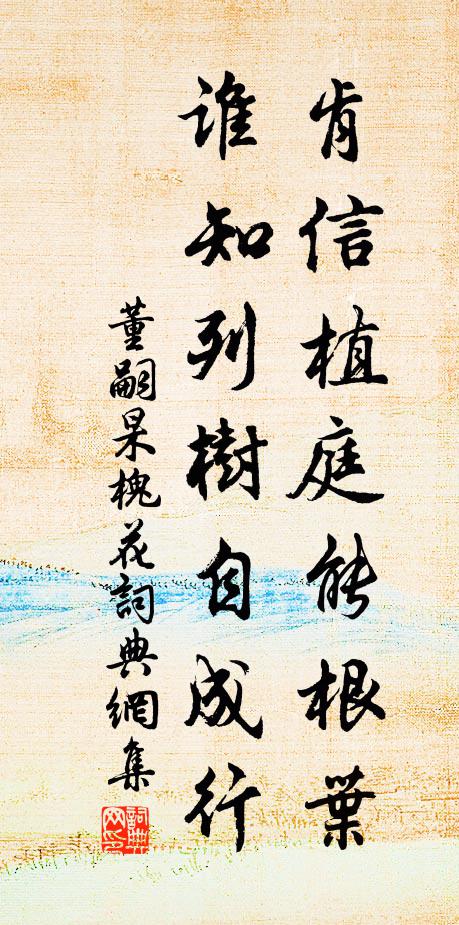 肯信植庭能根葉
誰知列樹自成行
董嗣杲槐花詞典網集
詞典網印